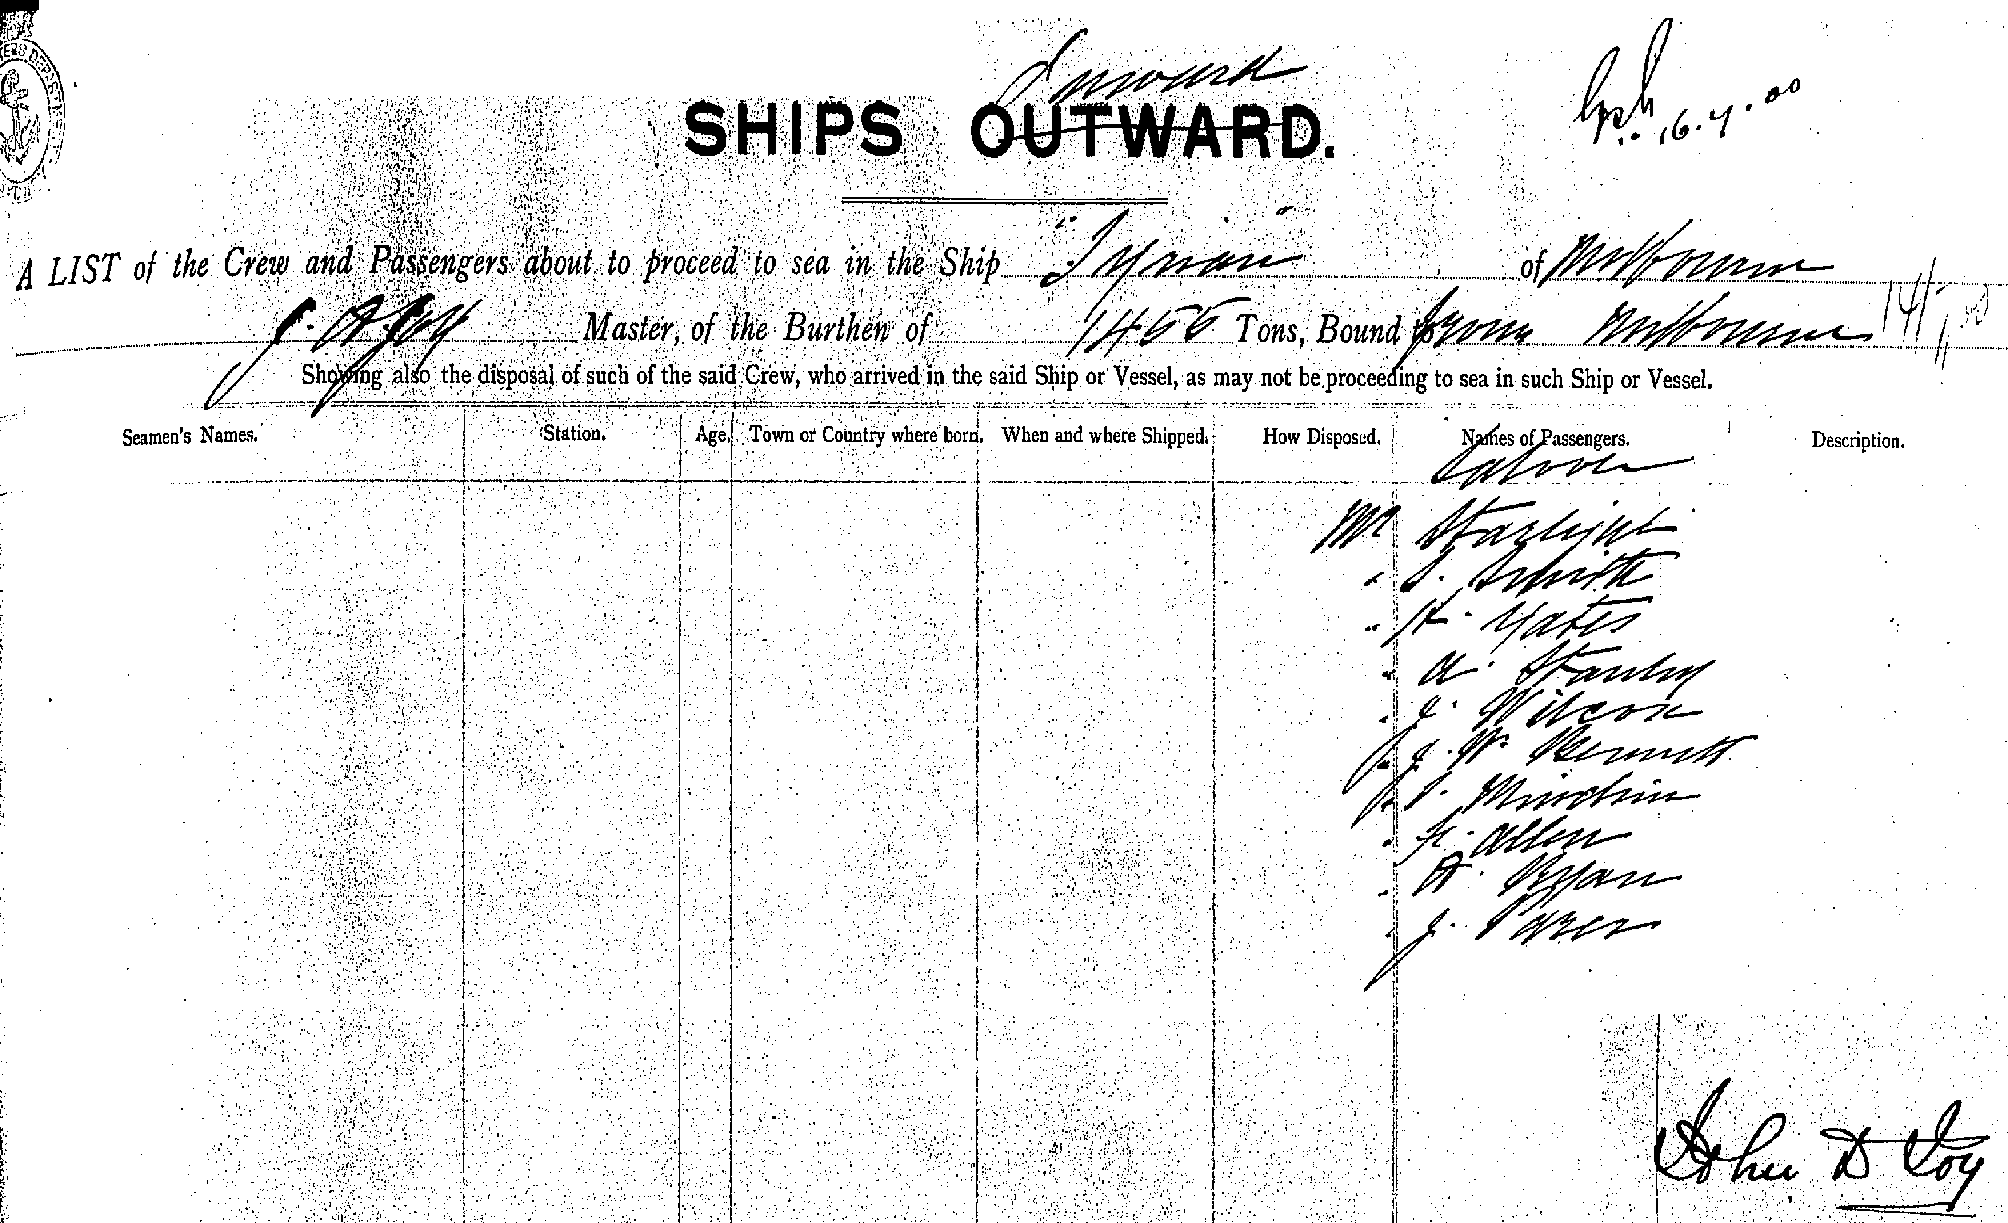 Inward
SHIPS OUTWARD.
16.7.00
A LIST of the Crew and Passengers about to proceed to sea in the Ship "Tyrian" of Melbourne
Master, of the Burthen of 1455 Tons, Bound from Melbourne
Showing also the disposal of such of the said Crew, who arrived in the said Ship or Vessel, as may not be proceeding to sea in such Ship or Vessel.
Seamen's Names. Station. Age. Town or Country where born. When and where Shipped. How Disposed. Names of Passengers. Description.
Saloon
Mr Starlight
" Smith
" H. Yates
" A. Stanley
" J. Wilcox
" J. W. Bennett
" Minchin
" Allen
" A. Ryan
" J. Parer
John D Joy